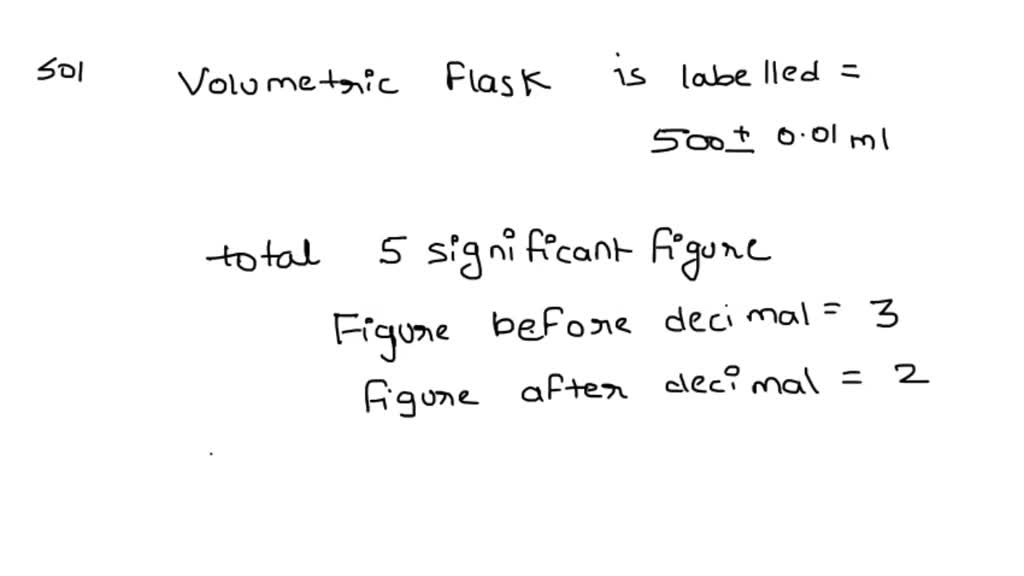 Sol
Volumetric Flask is labelled =
500 ± 0.01 ml
total 5 significant figure
Figure before decimal = 3
figure after decimal = 2